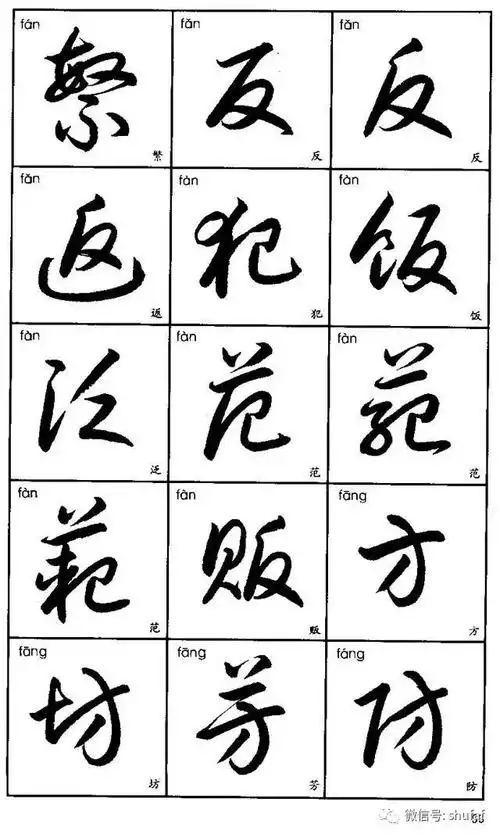 fán fǎn fǎn
繁 反 反
繁 反 反
fǎn fàn fàn
返 犯 饭
返 犯 饭
fàn fàn fàn
泛 范 范
泛 范 范
fàn fàn fāng
范 贩 方
范 贩 方
fāng fāng fáng
坊 芳 防
坊 芳 防
微信号: shufxf